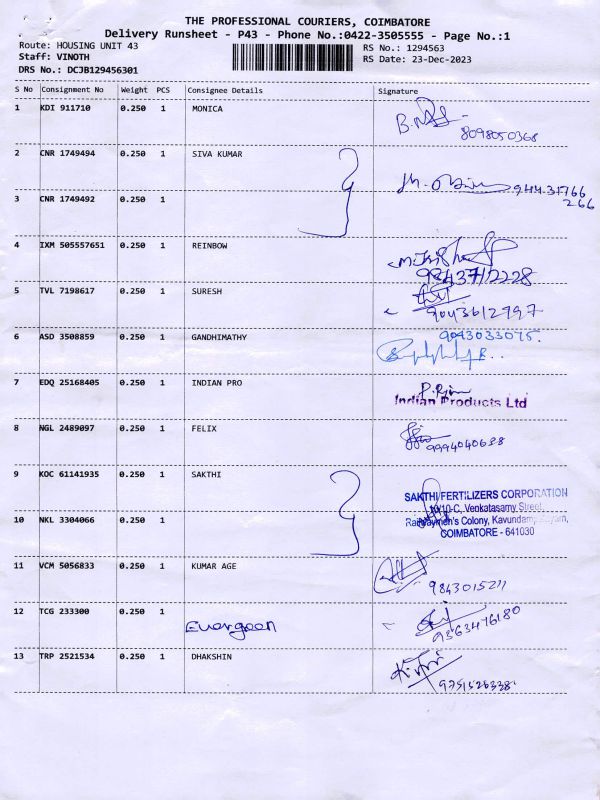 THE PROFESSIONAL COURIERS, COIMBATORE
Delivery Runsheet - P43 - Phone No.:0422-3505555 - Page No.:1
Route: HOUSING UNIT 43 RS No.: 1294563
Staff: VINOTH RS Date: 23-Dec-2023
DRS No.: DCJB129456301
S No Consignment No Weight PCS Consignee Details Signature
1 KDI 911710 0.250 1 MONICA
8098050368
2 CNR 1749494 0.250 1 SIVA KUMAR
3 CNR 1749492 0.250 1
266
4 IXM 505557651 0.250 1 REINBOW
9843712228
5 TVL 7198617 0.250 1 SURESH
9043612797
6 ASD 3508859 0.250 1 GANDHIMATHY 9043033075.
7 EDQ 25168405 0.250 1 INDIAN PRO
Indian Products Ltd
8 NGL 2489097 0.250 1 FELIX
9994040688
9 KOC 61141935 0.250 1 SAKTHI
SAKTHI FERTILIZERS CORPORATION
10-C, Venkatasamy Street,
10 NKL 3304066 0.250 1
Colony,
COIMBATORE - 641030
11 VCM 5056833 0.250 1 KUMAR AGE
9843015211
12 TCG 233300 0.250 1
Evergreen 9363476180
13 TRP 2521534 0.250 1 DHAKSHIN
9751526338